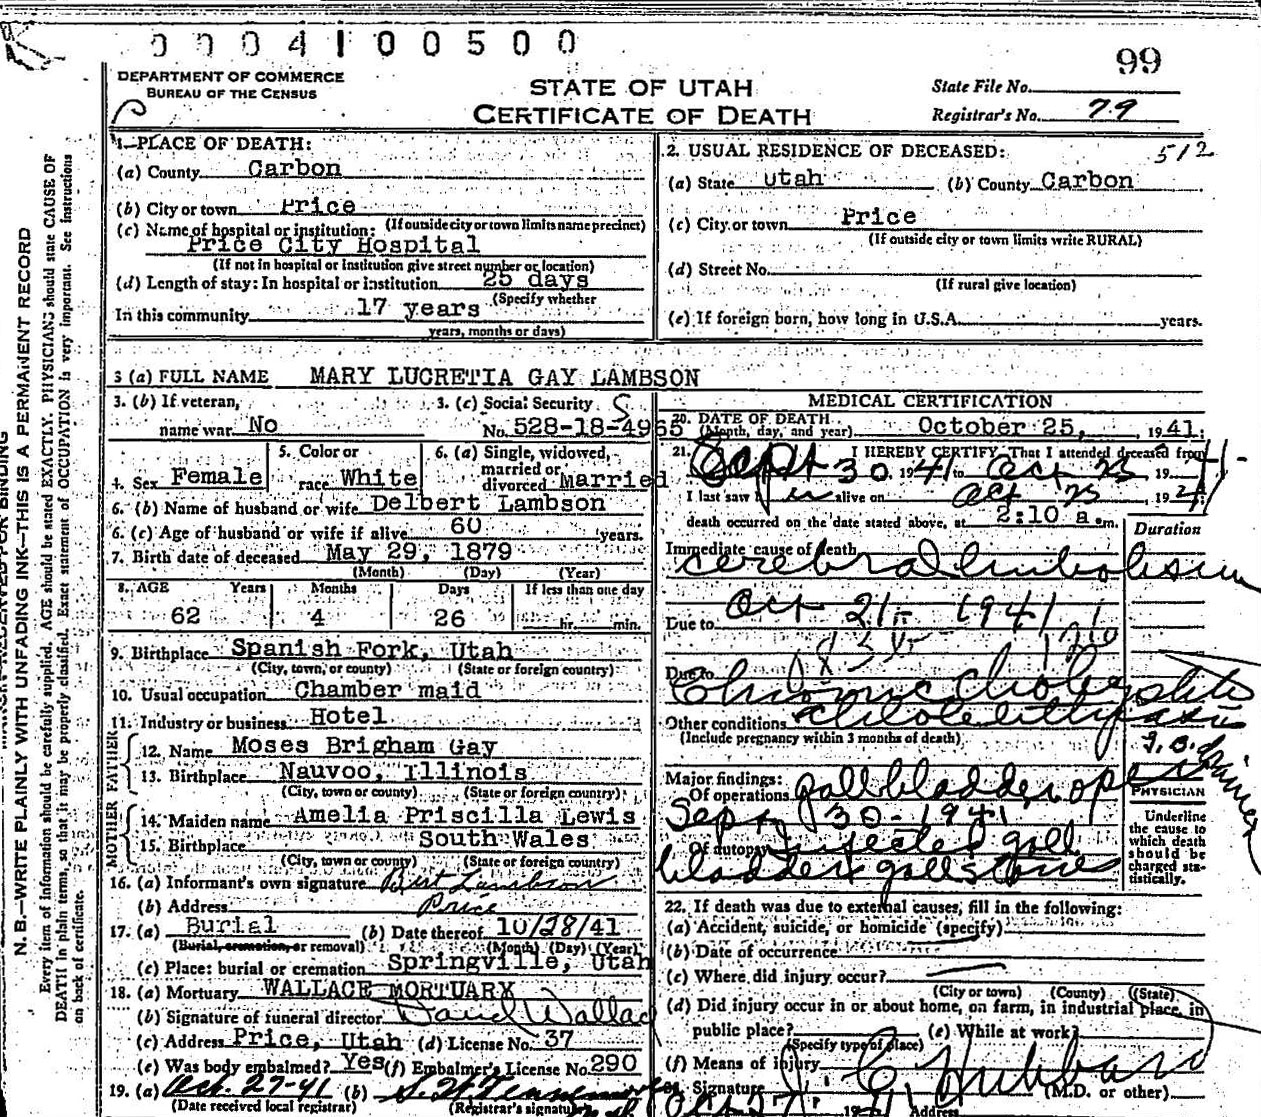 00041 00500
99
DEPARTMENT OF COMMERCE
BUREAU OF THE CENSUS
STATE OF UTAH
CERTIFICATE OF DEATH
State File No.
Registrar's No. 79
1. PLACE OF DEATH:
(a) County Carbon
(b) City or town Price
(If outside city or town limits name precinct)
(c) Name of hospital or institution:
Price City Hospital
(If not in hospital or institution give street number or location)
(d) Length of stay: In hospital or institution 25 days
(Specify whether
In this community 17 years
years, months or days)
2. USUAL RESIDENCE OF DECEASED: 512
(a) State Utah (b) County Carbon
(c) City or town Price
(If outside city or town limits write RURAL)
(d) Street No.
(If rural give location)
(e) If foreign born, how long in U.S.A. years.
3 (a) FULL NAME MARY LUCRETIA GAY LAMBSON
3. (b) If veteran,
name war No
3. (c) Social Security
No. 528-18-4965
4. Sex Female
5. Color or
race White
6. (a) Single, widowed,
married or
divorced Married
6. (b) Name of husband or wife Delbert Lambson
6. (c) Age of husband or wife if alive 60 years.
7. Birth date of deceased May 29, 1879
(Month) (Day) (Year)
8. AGE Years Months Days If less than one day
62 4 26 hr. min.
9. Birthplace Spanish Fork, Utah
(City, town, or county) (State or foreign country)
10. Usual occupation Chamber maid
11. Industry or business Hotel
FATHER
12. Name Moses Brigham Gay
13. Birthplace Nauvoo, Illinois
(City, town or county) (State or foreign country)
MOTHER
14. Maiden name Amelia Priscilla Lewis
15. Birthplace South Wales
(City, town or county) (State or foreign country)
16. (a) Informant's own signature Bert Lambson
(b) Address Price
17. (a) Burial (b) Date thereof 10/28/41
(Burial, cremation, or removal) (Month) (Day) (Year)
(c) Place: burial or cremation Springville, Utah
18. (a) Mortuary WALLACE MORTUARY
(b) Signature of funeral director David Wallace
(c) Address Price, Utah (d) License No. 37
(e) Was body embalmed? Yes (f) Embalmer's License No. 290
19. (a) Oct. 27-41 (b)
(Date received local registrar) (Registrar's signature)
MEDICAL CERTIFICATION
20. DATE OF DEATH
(Month, day, and year) October 25, 1941
21. I HEREBY CERTIFY, That I attended deceased from
Sept 30 1941 to Oct 25 1941
I last saw her alive on Oct 25, 1941
death occurred on the date stated above, at 2:10 a.m.
Duration
Immediate cause of death
cerebral embolism
Oct 21 - 1941
Due to
Due to
Chronic Cholecystitis
Other conditions cholelithiasis
(Include pregnancy within 3 months of death)
Major findings:
Of operations gallbladder oper
Sept 30 - 1941
Of autopsy infected gall
bladder gallstone
PHYSICIAN
Underline
the cause to
which death
should be
charged sta-
tistically.
22. If death was due to external causes, fill in the following:
(a) Accident, suicide, or homicide (specify)
(b) Date of occurrence
(c) Where did injury occur?
(City or town) (County) (State)
(d) Did injury occur in or about home, on farm, in industrial place, in
public place? (e) While at work?
(Specify type of place)
(f) Means of injury
Signature C. Hubbard (M.D. or other)
Oct 27, 1941 Address
N. B.—WRITE PLAINLY WITH UNFADING INK—THIS IS A PERMANENT RECORD
Every item of information should be carefully supplied. AGE should be stated EXACTLY. PHYSICIANS should state CAUSE OF
DEATH in plain terms, so that it may be properly classified. Exact statement of OCCUPATION is very important. See instructions
on back of certificate.